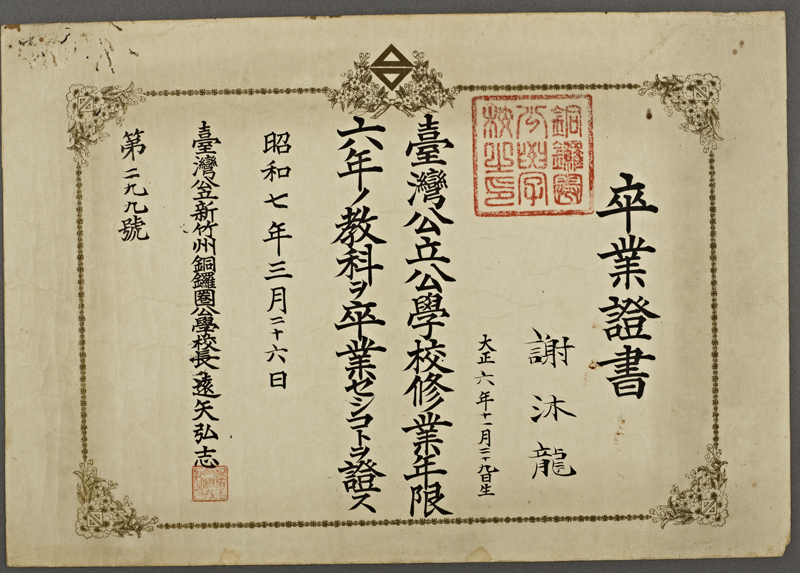 卒業證書
謝沐龍
大正六年十一月二十九日生
臺灣公立公學校修業年限
六年ノ教科ヲ卒業セシコトヲ證ス
昭和七年三月二十六日
臺灣公立新竹州銅鑼圈公學校長遠矢弘志
第二九九號